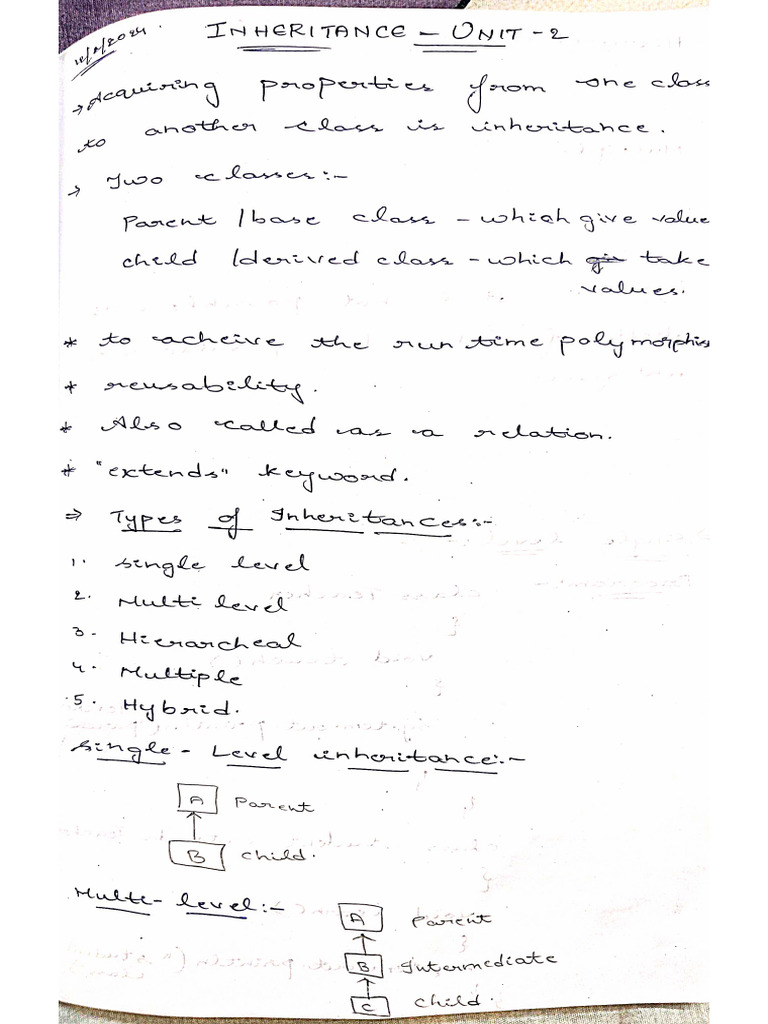 INHERITANCE - UNIT - 2
→ Acquiring properties from one class
to another class is inheritance.
→ Two classes:-
Parent / base class - which give value
child / derived class - which take
values.
* to acheive the run time polymorphis
* reusability.
* Also called as a relation.
* "extends" keyword.
⇒ Types of Inheritances:-
1. single level
2. Multi level
3. Hierarcheal
4. Multiple
5. Hybrid.
Single - Level inheritance:-
A Parent
B child.
Multi - level:-
A Parent
B Intermediate
C child.